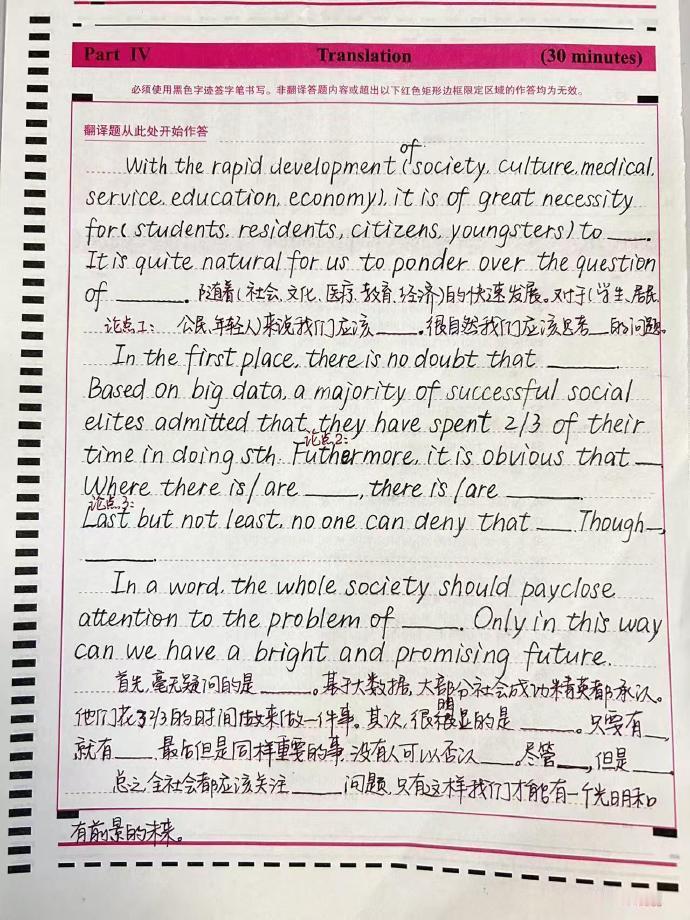 Part IV Translation (30 minutes)
必须使用黑色字迹签字笔书写。非翻译答题内容或超出以下红色矩形边框限定区域的作答均为无效。
翻译题从此处开始作答
of
With the rapid development (society, culture, medical,
service, education, economy), it is of great necessity
for( students, residents, citizens, youngsters) to ___.
It is quite natural for us to ponder over the question
of ______. 随着(社会、文化、医疗、教育、经济)的快速发展。对于(学生、居民、
论点1: 公民、年轻人)来说我们应该____。很自然我们应该思考__的问题。
In the first place, there is no doubt that ______.
Based on big data, a majority of successful social
elites admitted that they have spent 2/3 of their
论点2:
time in doing sth. Futhermore, it is obvious that __
Where there is/are _____, there is/are ______.
论点3:
Last but not least, no one can deny that ___ Though__,
______.
In a word, the whole society should payclose
attention to the problem of _____. Only in this way
can we have a bright and promising future.
首先,毫无疑问的是_____。基于大数据,大部分社会成功精英都承认。
他们花了2/3的时间做来做一件事。其次,很明显的是_____。只要有__,
就有____. 最后但是同样重要的事,没有人可以否认____。尽管___,但是___.
总之,全社会都应该关注_____问题,只有这样我们才能有一个光明和
有前景的未来。